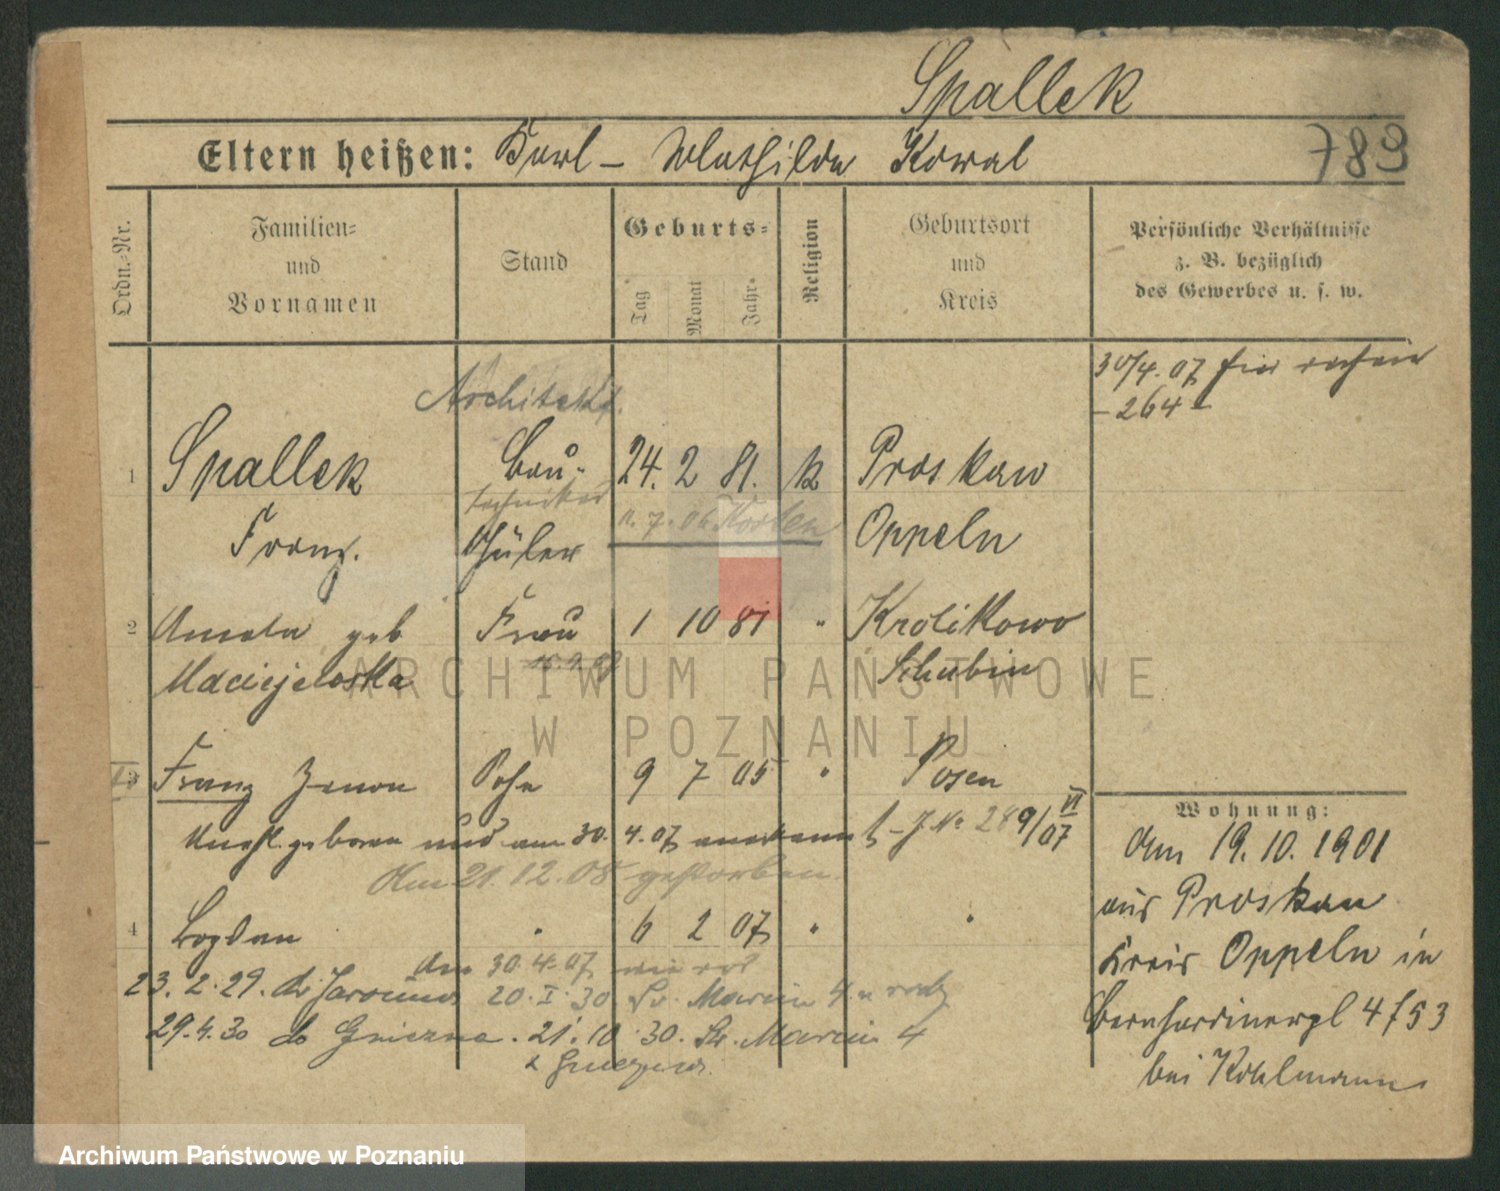 Spallek
Eltern heißen: Karl – Mathilde Kowal
789
Ordn.-Nr.
Familien=
und
Vornamen
Stand
Geburts=
Tag
Monat
Jahr=
Religion
Geburtsort
und
Kreis
Persönliche Verhältnisse
z. B. bezüglich
des Gewerbes u. s. w.
30/4. 07
– 264
Architekt.
1 Spallek Bau- 24. 2 81. k Proskau
techniker 11. 7. 06 Kosten
Franz. Schüler Oppeln
2 Amata geb Frau 1 10 81 " Krolikowo
Maciejewska Schubin
3 Franz Zenon Sohn 9 7 05 " Posen
Unehl. geboren und am 30. 4. 07 anerkannt – J. No 289/VI 07
Am 21. 12. 05 gestorben.
4 Bogdan " 6 2 07 " "
30. 4. 07
23. 2. 29. do 20. I. 30 Św. Marcin 4
29. 4. 30 do Gniezna. 21. 10. 30. Św. Marcin 4
z Gniezna
Wohnung:
Am 19. 10. 1901
aus Proskau
Kreis Oppeln in
Bernhardinerpl 4
bei Kohlmann
ARCHIWUM PAŃSTWOWE
W POZNANIU
Archiwum Państwowe w Poznaniu